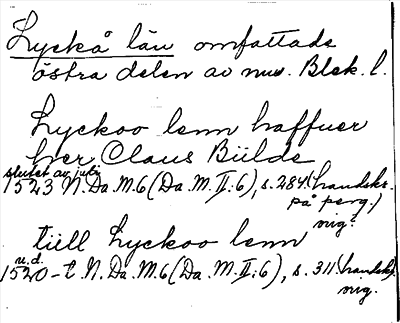 Lyckå län omfattade
östra delen av nuv. Blek. l.
Lyckoo lenn haffuer
her Claus Biilde
slutet av juli
1523 N. Da. M. 6 (Da. M. II: 6), s. 284. (handskr.
på perg.)
mig?
tiill Lyckoo lenn
u.d.
1520-t. N. Da. M. 6 (Da. M. II: 6), s. 311. (handskr.)
mig.